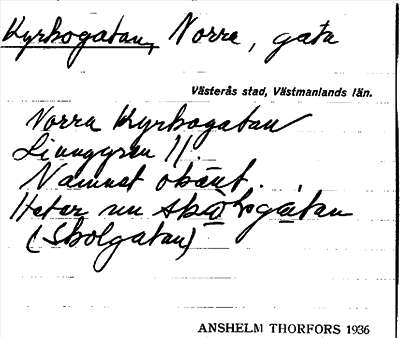 Kyrkogatan, Norra, gata
Västerås stad, Västmanlands län.
Norra Kyrkogatan
Linnggren 11.
Namnet okänt.
Heter nu skå̱lsgä̱tan
(Skolgatan)
ANSHELM THORFORS 1936